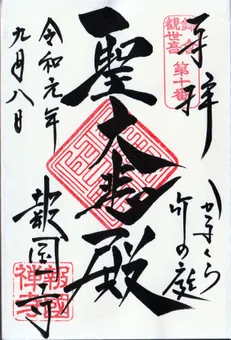 奉拝
鎌倉
観世音
第十番
かまくら
竹の庭
聖大悲殿
令和元年
九月八日
報国寺
報國
禅寺